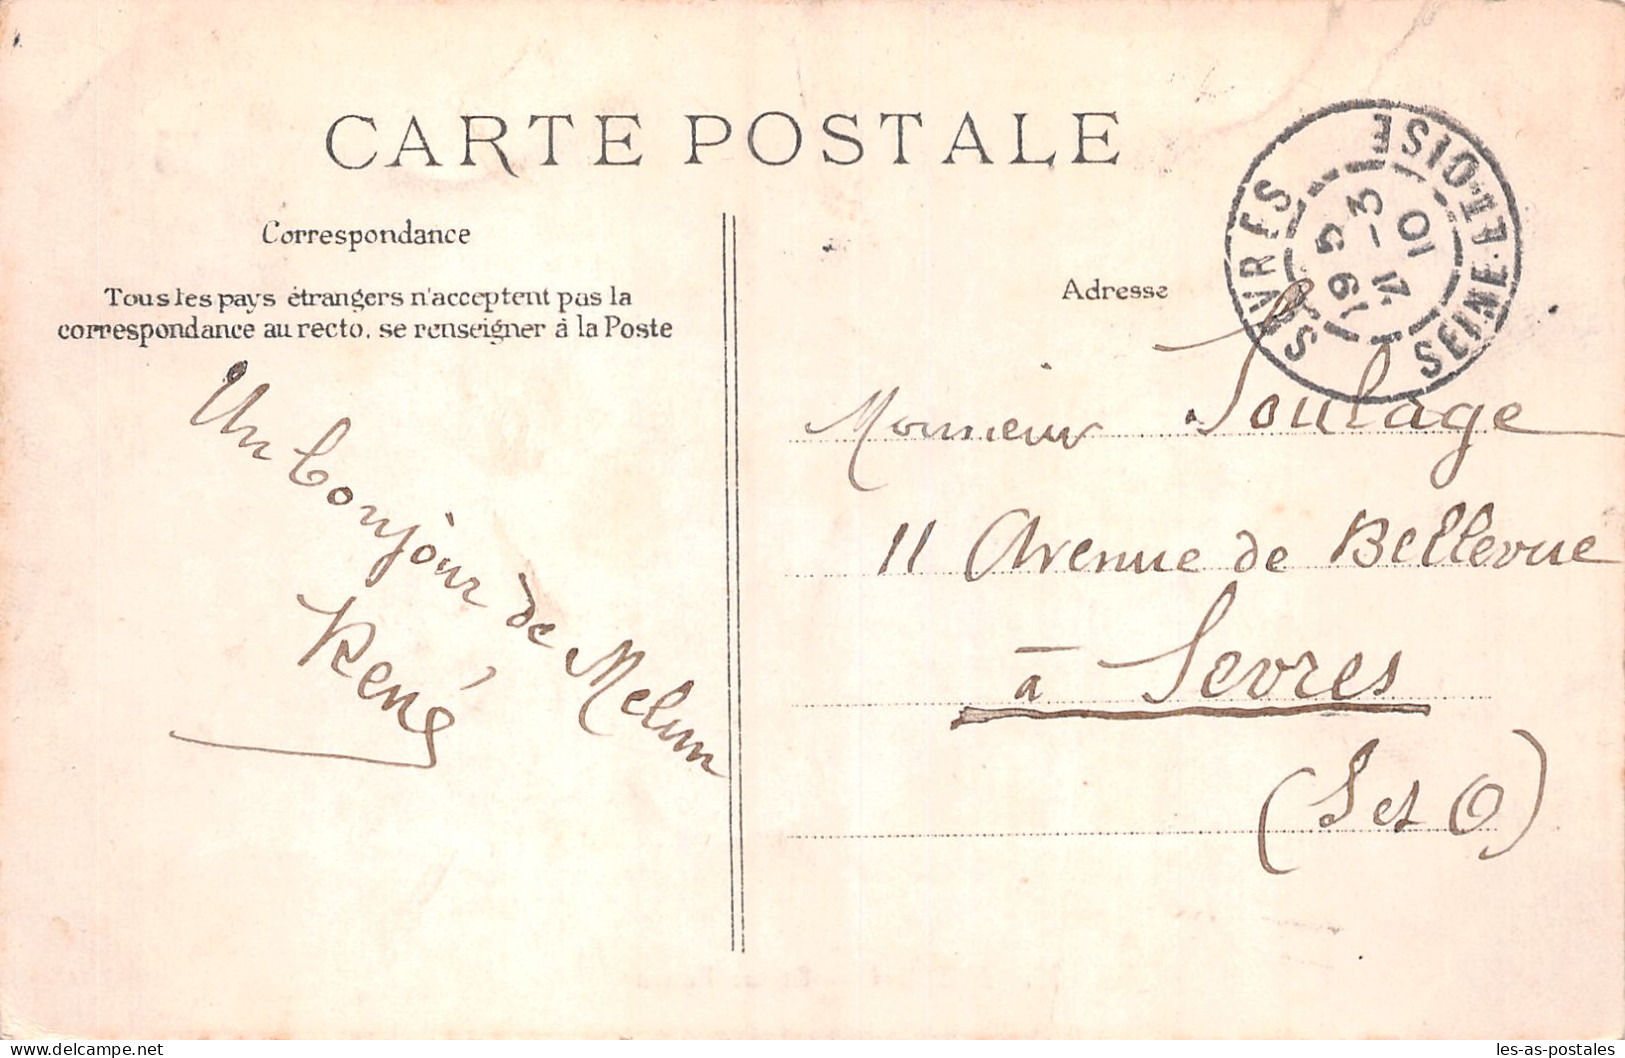 CARTE POSTALE
Correspondance
Tous les pays étrangers n'acceptent pas la
correspondance au recto, se renseigner à la Poste
Un bonjour de Melun
René
SEVRES
SEINE-ET-OISE
Adresse
Monsieur Soulage
11 Avenue de Bellevue
à Sevres
(S et O)
delcampe.net
les-as-postales